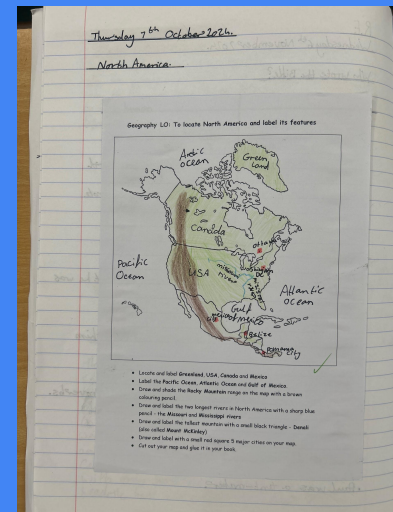 Thursday 7th October 2024.
North America.
Geography LO: To locate North America and label its features
Arctic
Ocean
Green
Land
Canada
Ottawa
Pacific
Ocean
USA
missouri
river
Washington
DC
Atlantic
Ocean
Gulf
of Mexico
Belize
Panama
City
• Locate and label Greenland, USA, Canada and Mexico
• Label the Pacific Ocean, Atlantic Ocean and Gulf of Mexico
• Draw and shade the Rocky Mountain range on the map with a brown
colouring pencil.
• Draw and label the two longest rivers in North America with a sharp blue
pencil - the Missouri and Mississippi rivers
• Draw and label the tallest mountain with a small black triangle - Denali
(also called Mount McKinley)
• Draw and label with a small red square 5 major cities on your map.
• Cut out your map and glue it in your book.